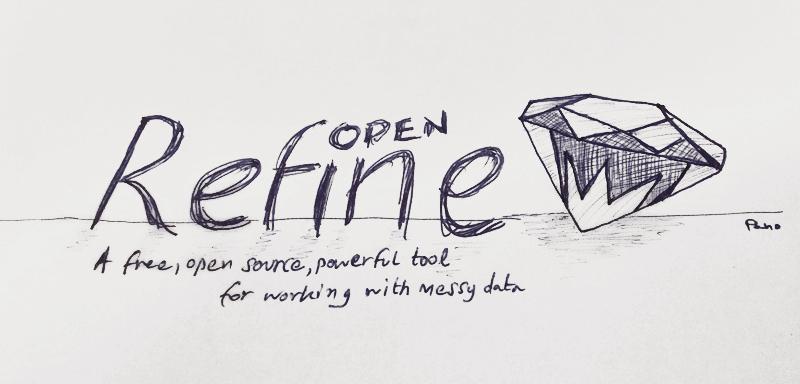 OPEN
Refine
A free, open source, powerful tool
for working with messy data
Pano